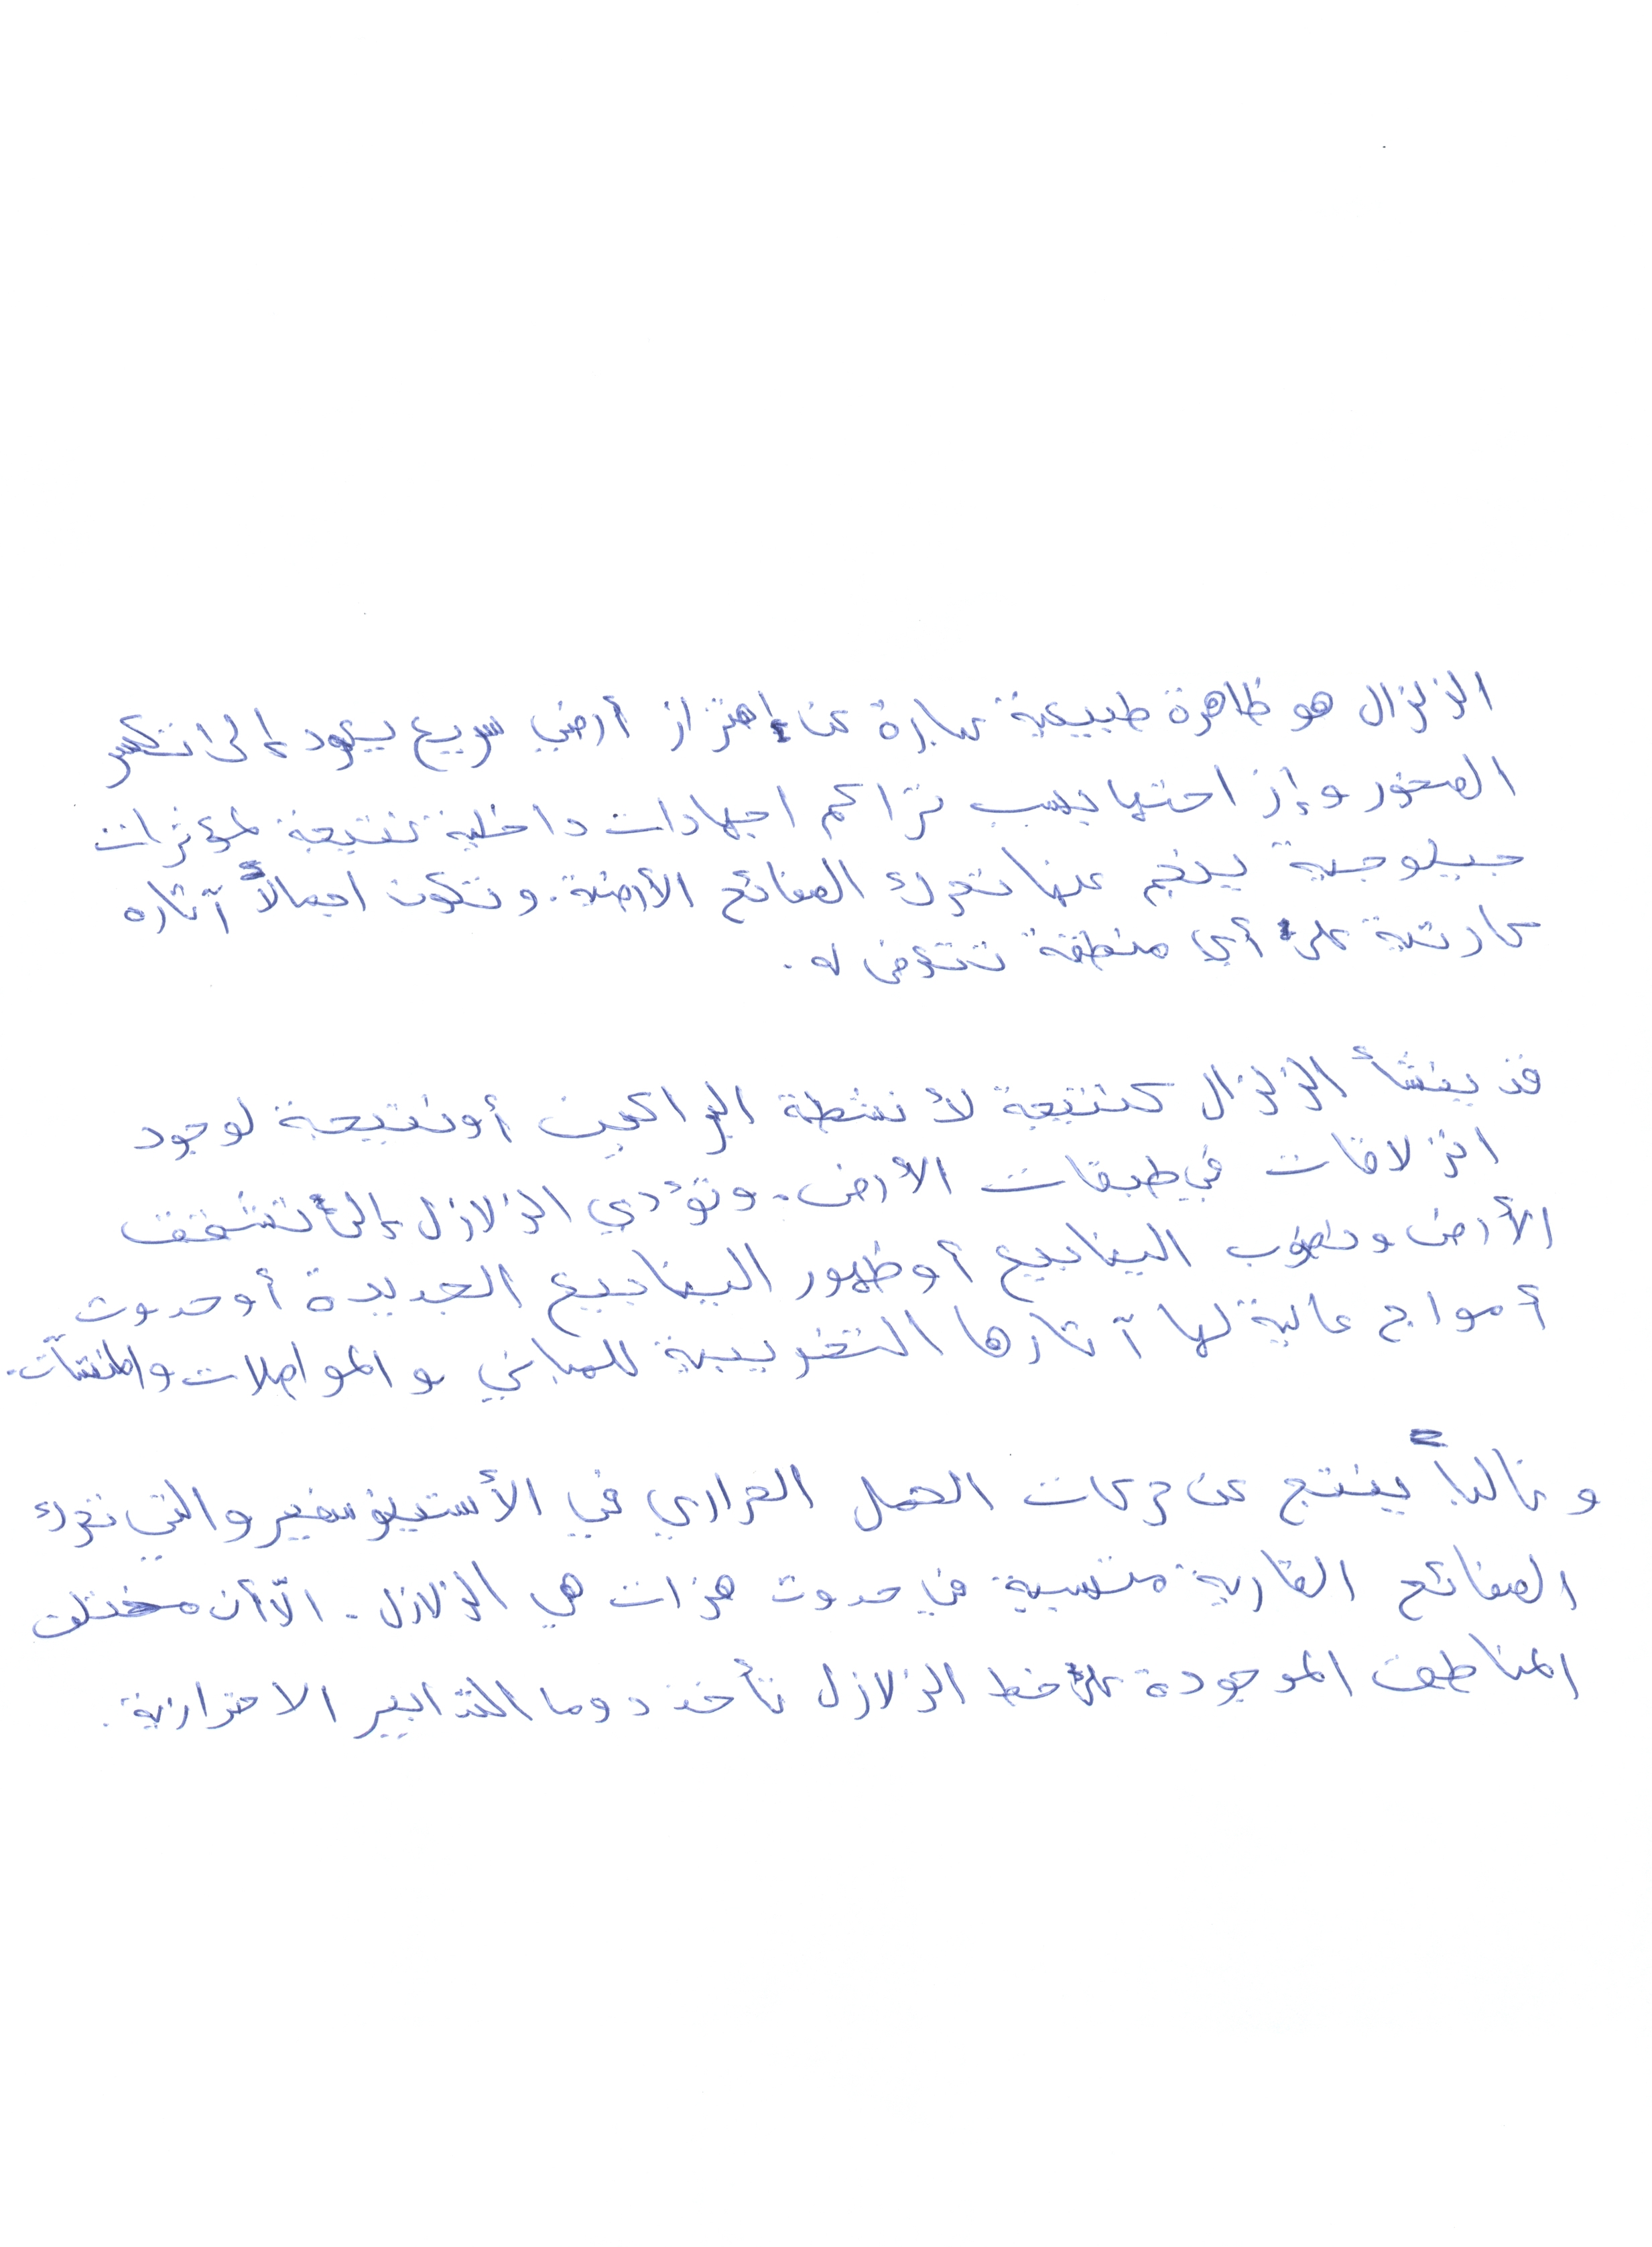 الزلزال هو ظاهرة طبيعية عبارة عن إهتزاز أرضي سريع يعود إلى تكسر
الصخور وإزاحتها بسبب تراكم اجهادات داخلية نتيجة لمؤثرات
جيلوجية ينجم عنها تحرك الصفائح الأرضية. وتكون اجمالاً آثاره
كارثية على أي منطقة تتعرض له.
قد ينشأ الزلزال كنتيجة لأنشطة البراكين أو نتيجة لوجود
انزلاقات في طبقات الأرض. وتؤدي الزلازل إلى تشقق
الأرض ونضوب الينابيع أو ظهور الينابيع الجديدة أو حدوث
أمواج عالية لها آثارها التخريبية للمباني والمواصلات والمنشآت.
وغالباً ينتج عن حركات الحمل الحراري في الأستينوسفير والتي تحرك
الصفائح القارية متسببة في حدوث هزات هي الزلازل. الّا أن مختلف
المناطق الموجودة على خط الزلازل تأخذ دوما التدابير الاحترازية.